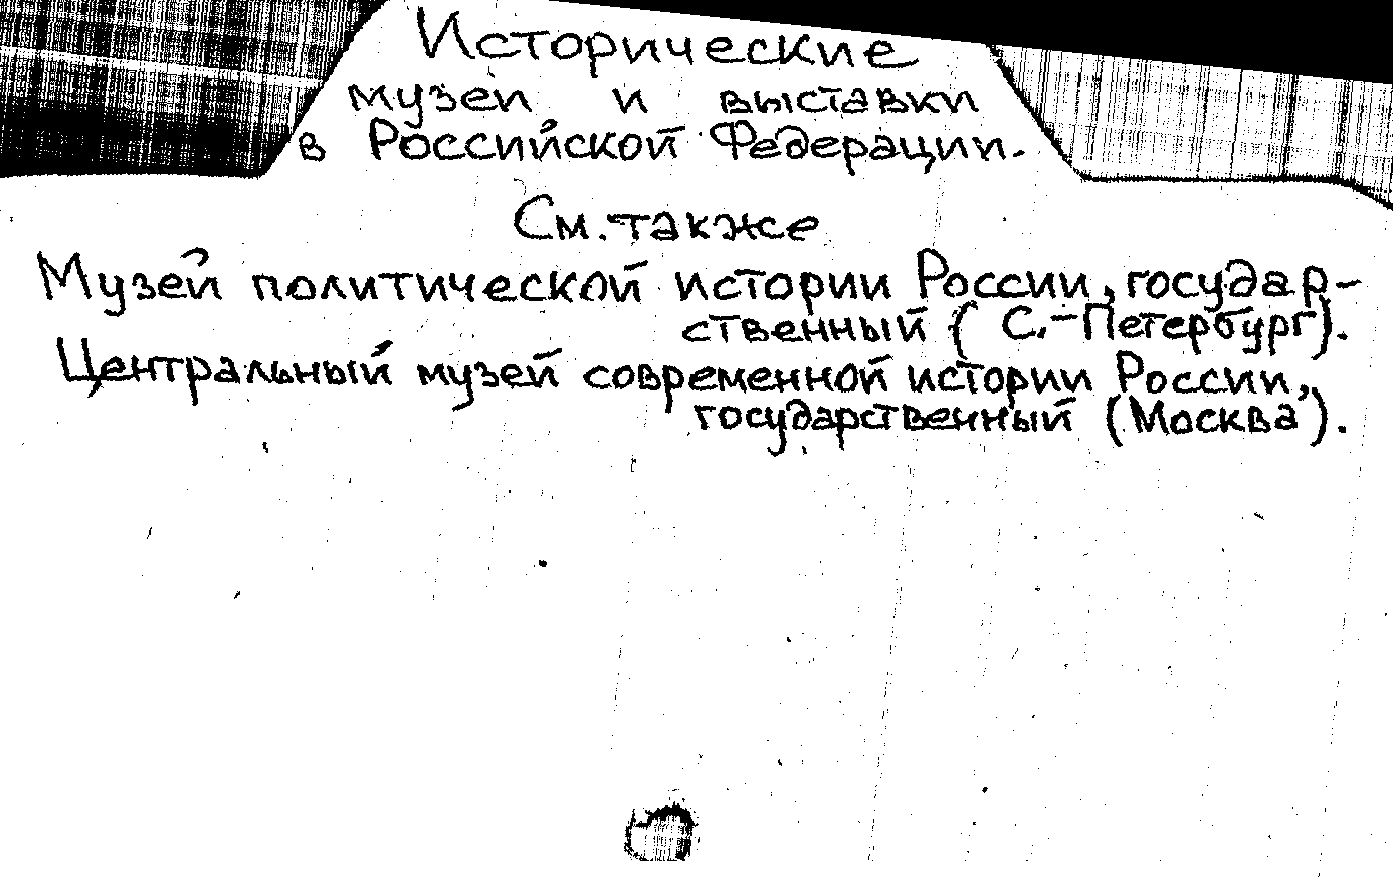 Исторические
музеи и выставки
в Российской Федерации.
См. также
Музей политической истории России, государ-
ственный (С.-Петербург).
Центральный музей современной истории России,
государственный (Москва).